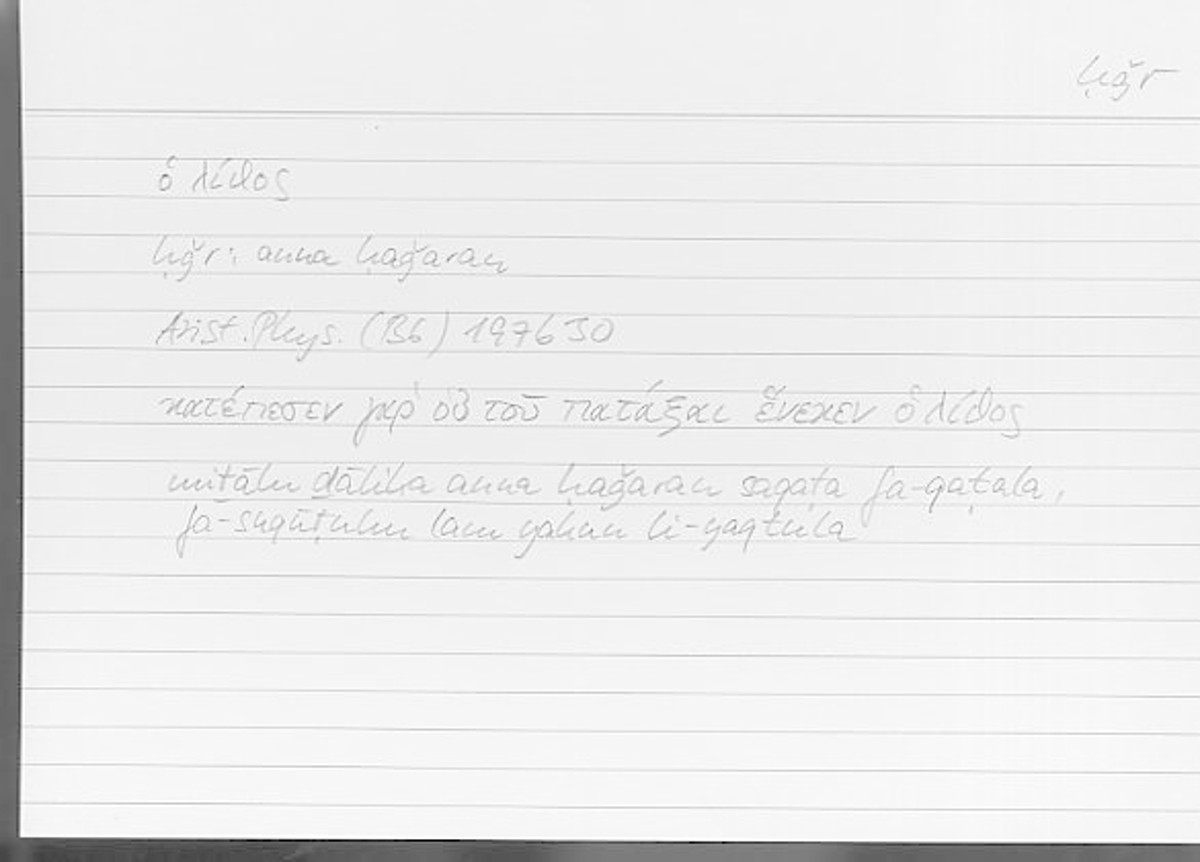 ḥǧr
ὁ λίθος
ḥǧr: anna ḥaǧaran
Arist. Phys. (B6) 197b30
κατέπεσεν γὰρ οὐ τοῦ πατάξαι ἕνεκεν ὁ λίθος
miṯālu ḏālika anna ḥaǧaran saqaṭa fa-qatala,
fa-suqūṭuhu lam yakun li-yaqtula